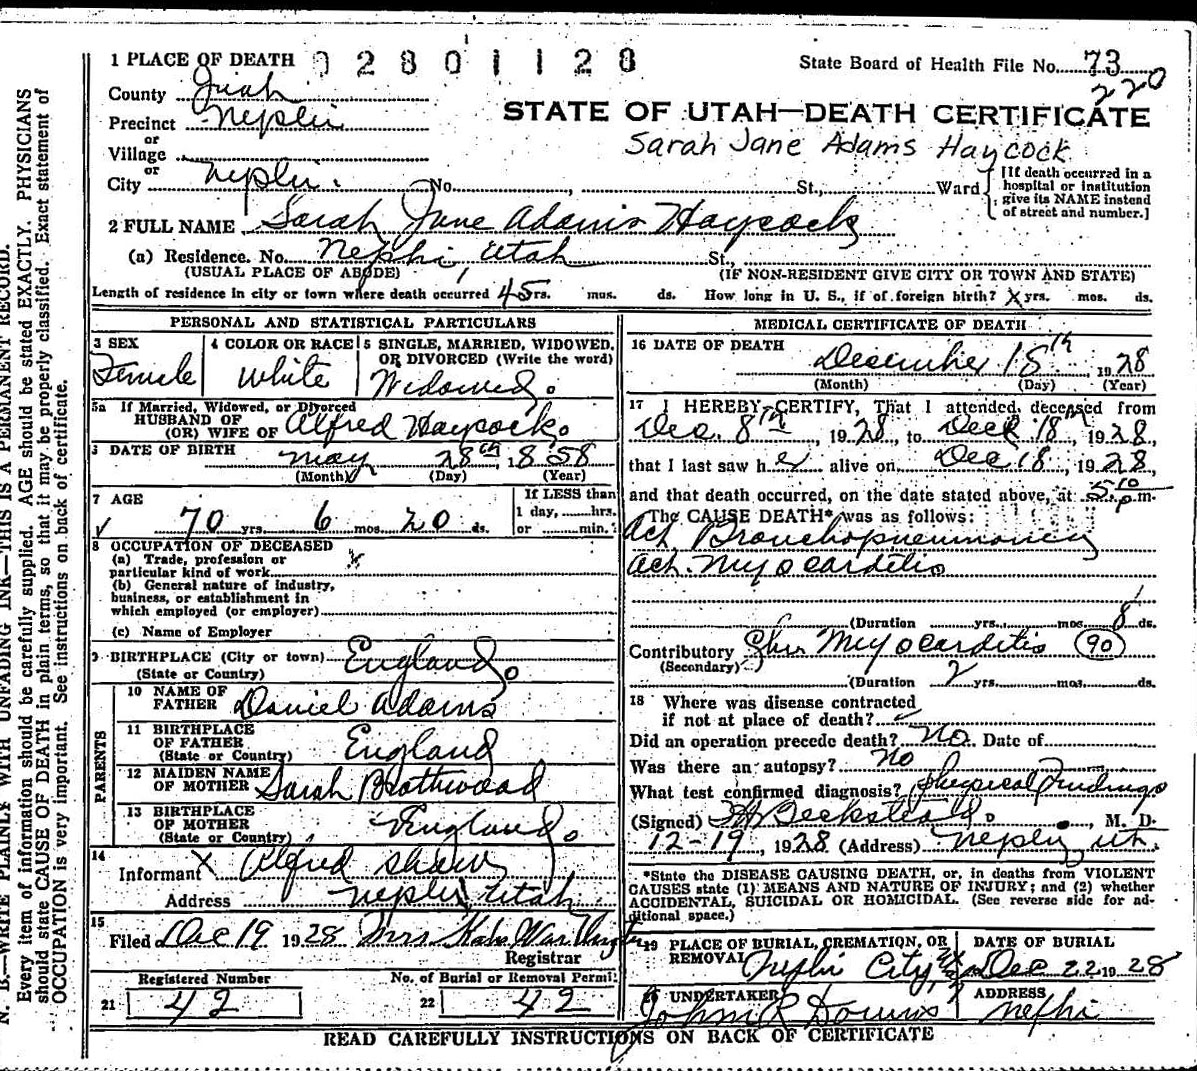 N. B.—WRITE PLAINLY WITH UNFADING INK—THIS IS A PERMANENT RECORD.
Every item of information should be carefully supplied. AGE should be stated EXACTLY. PHYSICIANS
should state CAUSE OF DEATH in plain terms, so that it may be properly classified. Exact statement of
OCCUPATION is very important. See instructions on back of certificate.
1 PLACE OF DEATH 02801128
State Board of Health File No. 73
220
County Juab
STATE OF UTAH—DEATH CERTIFICATE
Precinct Nephi
Sarah Jane Adams Haycock
or
Village
or
City Nephi. No. , St., Ward
[If death occurred in a
hospital or institution
give its NAME instead
of street and number.]
2 FULL NAME Sarah Jane Adams Haycock
(a) Residence. No. Nephi, Utah St.,
(USUAL PLACE OF ABODE) (IF NON-RESIDENT GIVE CITY OR TOWN AND STATE)
Length of residence in city or town where death occurred 45 yrs. mos. ds. How long in U. S., if of foreign birth? x yrs. mos. ds.
PERSONAL AND STATISTICAL PARTICULARS
3 SEX
Female
4 COLOR OR RACE
White
5 SINGLE, MARRIED, WIDOWED,
OR DIVORCED (Write the word)
Widowed.
5a If Married, Widowed, or Divorced
HUSBAND OF
(OR) WIFE OF Alfred Haycock.
DATE OF BIRTH May 28th, 1858
(Month) (Day) (Year)
7 AGE
✓ 70 yrs. 6 mos. 20 ds.
If LESS than
1 day, hrs.
or min.
8 OCCUPATION OF DECEASED
(a) Trade, profession or
particular kind of work x
(b) General nature of industry,
business, or establishment in
which employed (or employer)
(c) Name of Employer
9 BIRTHPLACE (City or town) England.
(State or Country)
PARENTS
10 NAME OF
FATHER Daniel Adams
11 BIRTHPLACE
OF FATHER England
(State or Country)
12 MAIDEN NAME
OF MOTHER Sarah Brothwood
13 BIRTHPLACE
OF MOTHER England.
(State or Country)
14
Informant x Alfred Shaw
Address Nephi Utah
15
Filed Dec 19 1928 Mrs Kate Warthington
Registrar
Registered Number
21 42
No. of Burial or Removal Permit
22 42
MEDICAL CERTIFICATE OF DEATH
16 DATE OF DEATH
December 18th 1928
(Month) (Day) (Year)
17 I HEREBY CERTIFY, That I attended deceased from
Dec. 8th, 1928, to Dec 18th, 1928,
that I last saw her alive on Dec 18, 1928,
and that death occurred, on the date stated above, at 5 10 p.m.
The CAUSE DEATH* was as follows:
Act Bronchopneumonia
Act. Myocarditis
(Duration yrs. mos. 8 ds.
Contributory Chr Myocarditis 90
(Secondary)
(Duration 2 yrs. mos. ds.
18 Where was disease contracted
if not at place of death? ✓
Did an operation precede death? No. Date of
Was there an autopsy? No
What test confirmed diagnosis? Physical Findings
(Signed) Beckstead, M. D.
12-19, 1928 (Address) Nephi, Ut.
*State the DISEASE CAUSING DEATH, or, in deaths from VIOLENT
CAUSES state (1) MEANS AND NATURE OF INJURY; and (2) whether
ACCIDENTAL, SUICIDAL OR HOMICIDAL. (See reverse side for ad-
ditional space.)
19 PLACE OF BURIAL, CREMATION, OR
REMOVAL Nephi City,
DATE OF BURIAL
Dec 22 1928
20 UNDERTAKER
John
ADDRESS
Nephi
READ CAREFULLY INSTRUCTIONS ON BACK OF CERTIFICATE